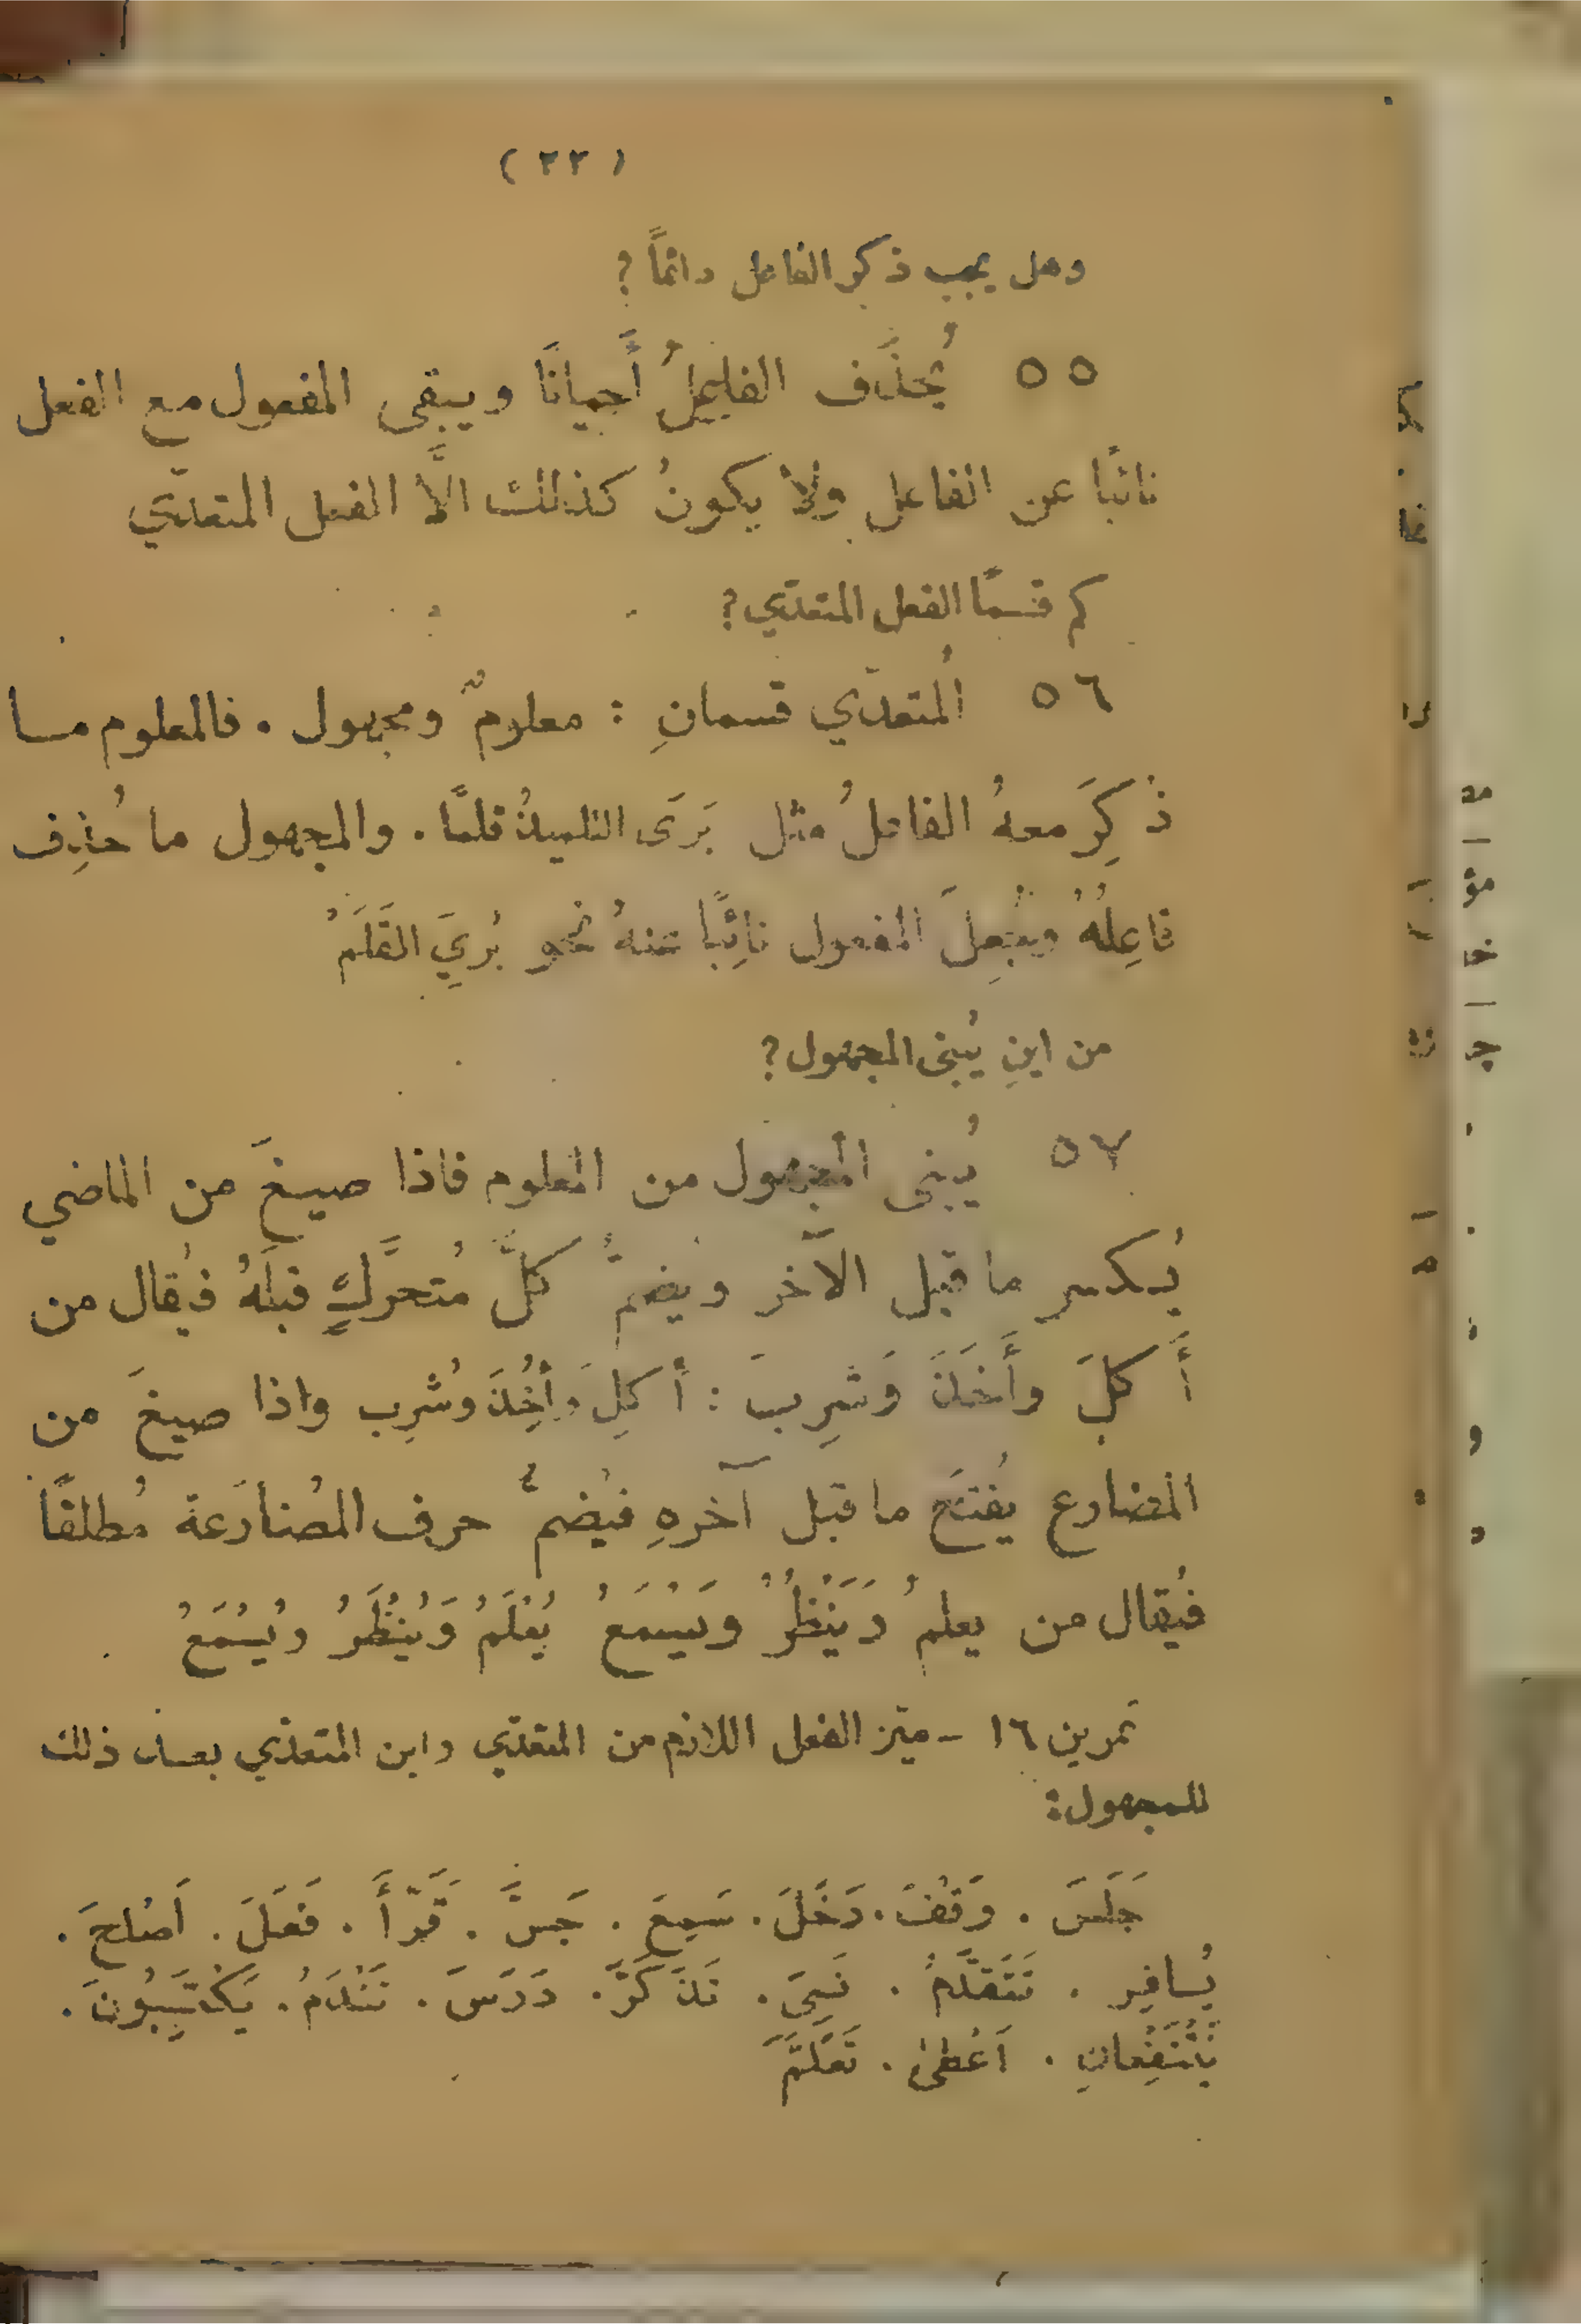 (٢٢)
وهل يجب ذكر الفاعل دائمًا؟
٥٥ يُحذَف الفاعلُ أَحيانًا ويبقى المفعول مع الفعل
نائبًا عن الفاعل ولا يكونُ كذلك الَّا الفعل المتعدّي
كم قسمًا الفعل المتعدّي؟
٥٦ اَلمتعدّي قسمانِ : معلومٌ ومجهول . فالمعلوم ما
ذُكِرَ معهُ الفاعلُ مثل بَرَى التلميذُ قلمًا . والمجهول ما حُذِف
فاعِلُهُ وجُعِلَ المفعول نائِبًا عنهُ نحو بُرِيَ القَلَمُ
من اين يُبنى المجهول؟
٥٧ يُبنى المجهول من المعلوم فاذا صيغَ من الماضي
يُكسر ما قبل الآخر ويُضمُّ كلُّ مُتحرِّكٍ قبلَهُ فيُقال من
أَكلَ وأَخَذَ وَشرِبَ : أُكلِ وأُخِذَ وشُرِب واذا صيغَ من
المضارع يُفتَح ما قبل آخرهِ فيُضمُّ حرف المُضارَعة مُطلقًا
فيُقال من يعلمُ وَيَنْظُرُ ويَسْمَعُ يُعْلَمُ وَيُنْظَرُ ويُسْمَعُ
تمرين ١٦ - ميّز الفعل اللازم من المتعدّي وابن المتعدّي بعد ذلك
للمجهول:
جَلَسَ . وَقَفَ . دَخَلَ . سَمِعَ . جَسَّ . قَرَأَ . فَعَلَ . اَصْلحَ .
يُسافِر . تَتَقَدَّمُ . نَسِيَ . تَذَكَّرَ . دَرَسَ . نَنْدَمُ . يَكْتَسِبُونَ .
يَنْتَفِعانِ . اَعْطَى . تَعَلَّمَ